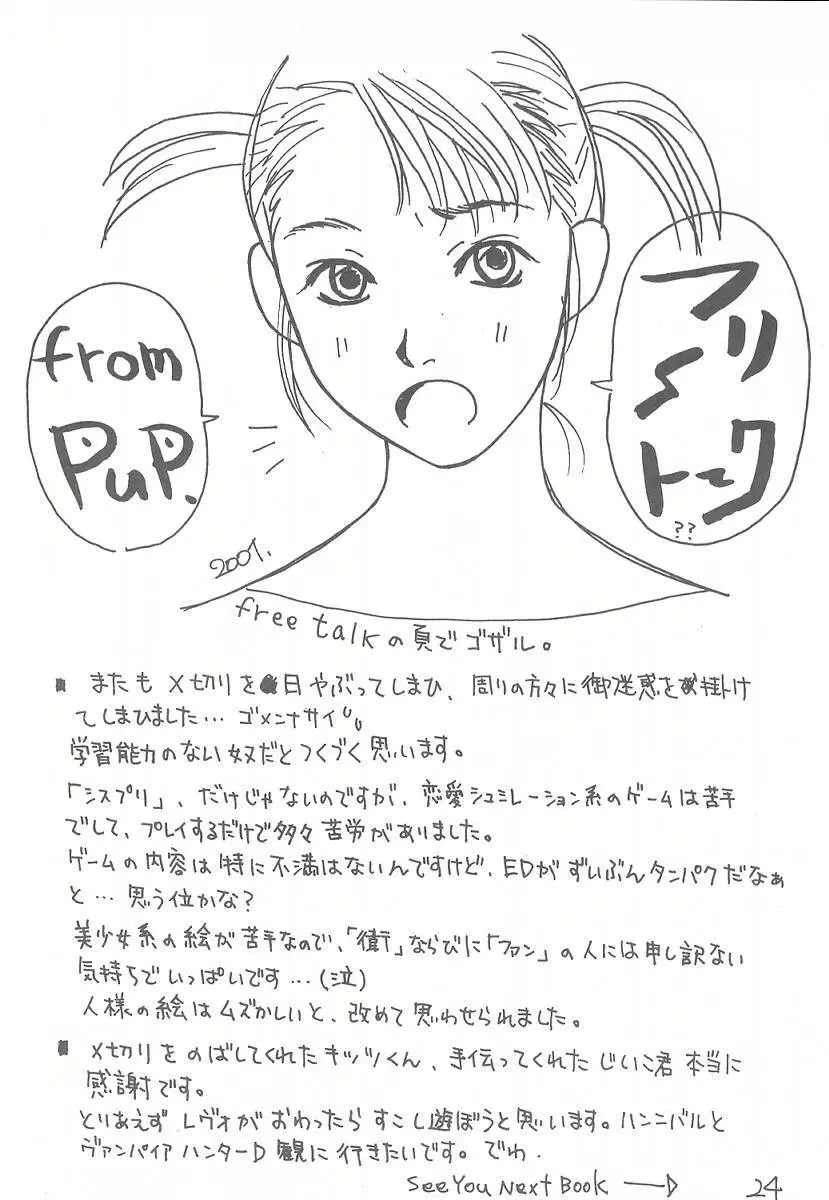 フリ〜トーク
??
from
PuP.
2001.
free talkの頁でゴザル。
またも〆切りを日やぶってしまひ、周りの方々に御迷惑を掛け
てしまひました…ゴメンナサイ
学習能力のない奴だとつくづく思います。
「シスプリ」、だけじゃないのですが、恋愛シュミレーション系のゲームは苦手
でして、プレイするだけで多々苦労がありました。
ゲームの内容は特に不満はないんですけど、EDがずいぶんタンパクだなぁ
と…思う位かな?
美少女系の絵が苦手なので、「衛」ならびに「ファン」の人には申し訳ない
気持ちでいっぱいです…(泣)
人様の絵はムズかしいと、改めて思わせられました。
〆切りをのばしてくれたキッツくん、手伝ってくれたじいこ君本当に
感謝です。
とりあえずレヴォがおわったらすこし遊ぼうと思います。ハンニバルと
ヴァンパイアハンターD観に行きたいです。でわ.
See You Next Book
24